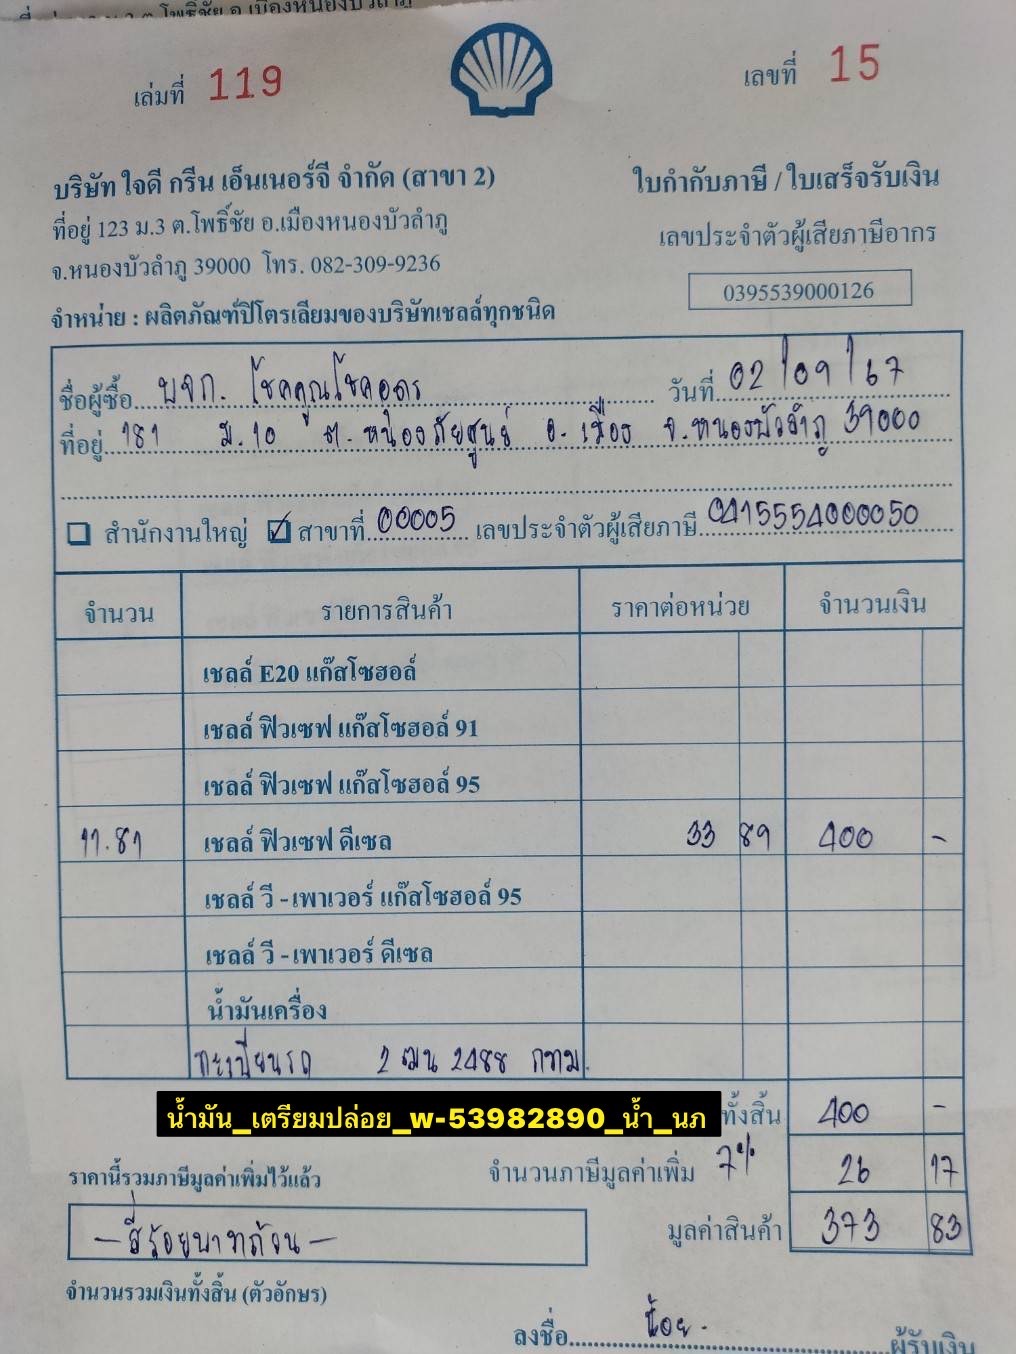 เล่มที่ 119
เลขที่ 15
บริษัท ใจดี กรีน เอ็นเนอร์จี จำกัด (สาขา 2)
ใบกำกับภาษี / ใบเสร็จรับเงิน
ที่อยู่ 123 ม.3 ต.โพธิ์ชัย อ.เมืองหนองบัวลำภู
เลขประจำตัวผู้เสียภาษีอากร
จ.หนองบัวลำภู 39000 โทร. 082-309-9236
0395539000126
จำหน่าย : ผลิตภัณฑ์ปิโตรเลียมของบริษัทเชลล์ทุกชนิด
ชื่อผู้ซื้อ บจก. โชคคูณโชคอุดร วันที่ 02/09/67
ที่อยู่ 181 ม.10 ต.หนองภัยศูนย์ อ.เมือง จ.หนองบัวลำภู 39000
สำนักงานใหญ่ ☑ สาขาที่ 00005 เลขประจำตัวผู้เสียภาษี 0415554000050
จำนวน รายการสินค้า ราคาต่อหน่วย จำนวนเงิน
เชลล์ E20 แก๊สโซฮอล์
เชลล์ ฟิวเซฟ แก๊สโซฮอล์ 91
เชลล์ ฟิวเซฟ แก๊สโซฮอล์ 95
11.81 เชลล์ ฟิวเซฟ ดีเซล 33 89 400 -
เชลล์ วี - เพาเวอร์ แก๊สโซฮอล์ 95
เชลล์ วี - เพาเวอร์ ดีเซล
น้ำมันเครื่อง
ทะเบียนรถ 2 ฒน 2488 กทม.
น้ำมัน_เตรียมปล่อย_w-53982890_น้ำ_นภ
ทั้งสิ้น 400 -
ราคานี้รวมภาษีมูลค่าเพิ่มไว้แล้ว
จำนวนภาษีมูลค่าเพิ่ม 7% 26 17
- สี่ร้อยบาทถ้วน -
มูลค่าสินค้า 373 83
จำนวนรวมเงินทั้งสิ้น (ตัวอักษร)
ลงชื่อ น้อย. ผู้รับเงิน